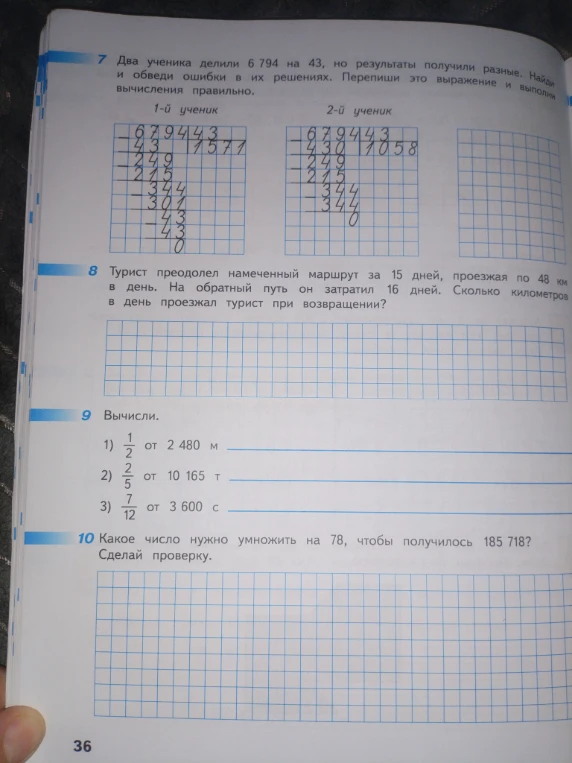 7 Два ученика делили 6 794 на 43, но результаты получили разные. Найди
и обведи ошибки в их решениях. Перепиши это выражение и выполни
вычисления правильно.
1-й ученик 2-й ученик
– 6794 43 – 6794 43
43 1571 430 1058
– 249 – 249
215 215
– 344 – 344
301 344
– 43 0
43
0
8 Турист преодолел намеченный маршрут за 15 дней, проезжая по 48 км
в день. На обратный путь он затратил 16 дней. Сколько километров
в день проезжал турист при возвращении?
9 Вычисли.
1) 1/2 от 2 480 м
2) 2/5 от 10 165 т
3) 7/12 от 3 600 с
10 Какое число нужно умножить на 78, чтобы получилось 185 718?
Сделай проверку.
36